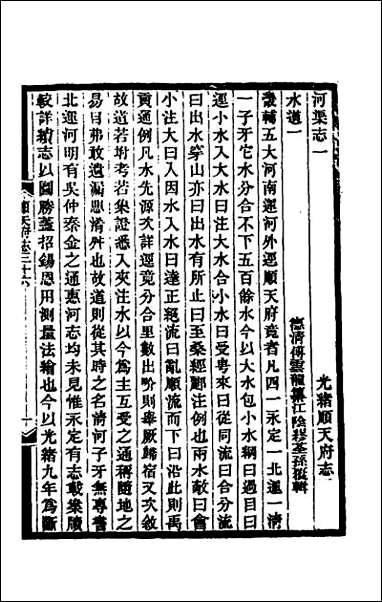 光緒順天府志
河渠志一
德清傅雲龍纂江陰繆荃孫覆輯
水道一
畿輔五大河南運河外逕順天府竟者凡四一永定一北運一清
一子牙它水分合不下五百餘水今以大水包小水綱曰過目曰
逕小水入大水曰注大水合小水曰受粤來曰從同流曰合分流
曰出水穿山亦曰出水有所止曰至桑經酈注例也兩水敵曰會
小注大曰入因水入水曰達正絕流曰亂順流而下曰沿此則禹
貢通例凡水先源次詳逕竟分合里數出畍則舉厥歸宿又次敘
故道若坿考若集證悉入夾注水以今爲主互受之通稱隨地之
易目弗敢遺漏思淆舛也故道則從其時之名清河子牙無專書
北運河明有吳仲秦金之通惠河志均未見惟永定有志載案牘
較詳續志以圖勝葢招錫恩用測量法繪也今以光緒九年爲斷
順天府志三十六
一